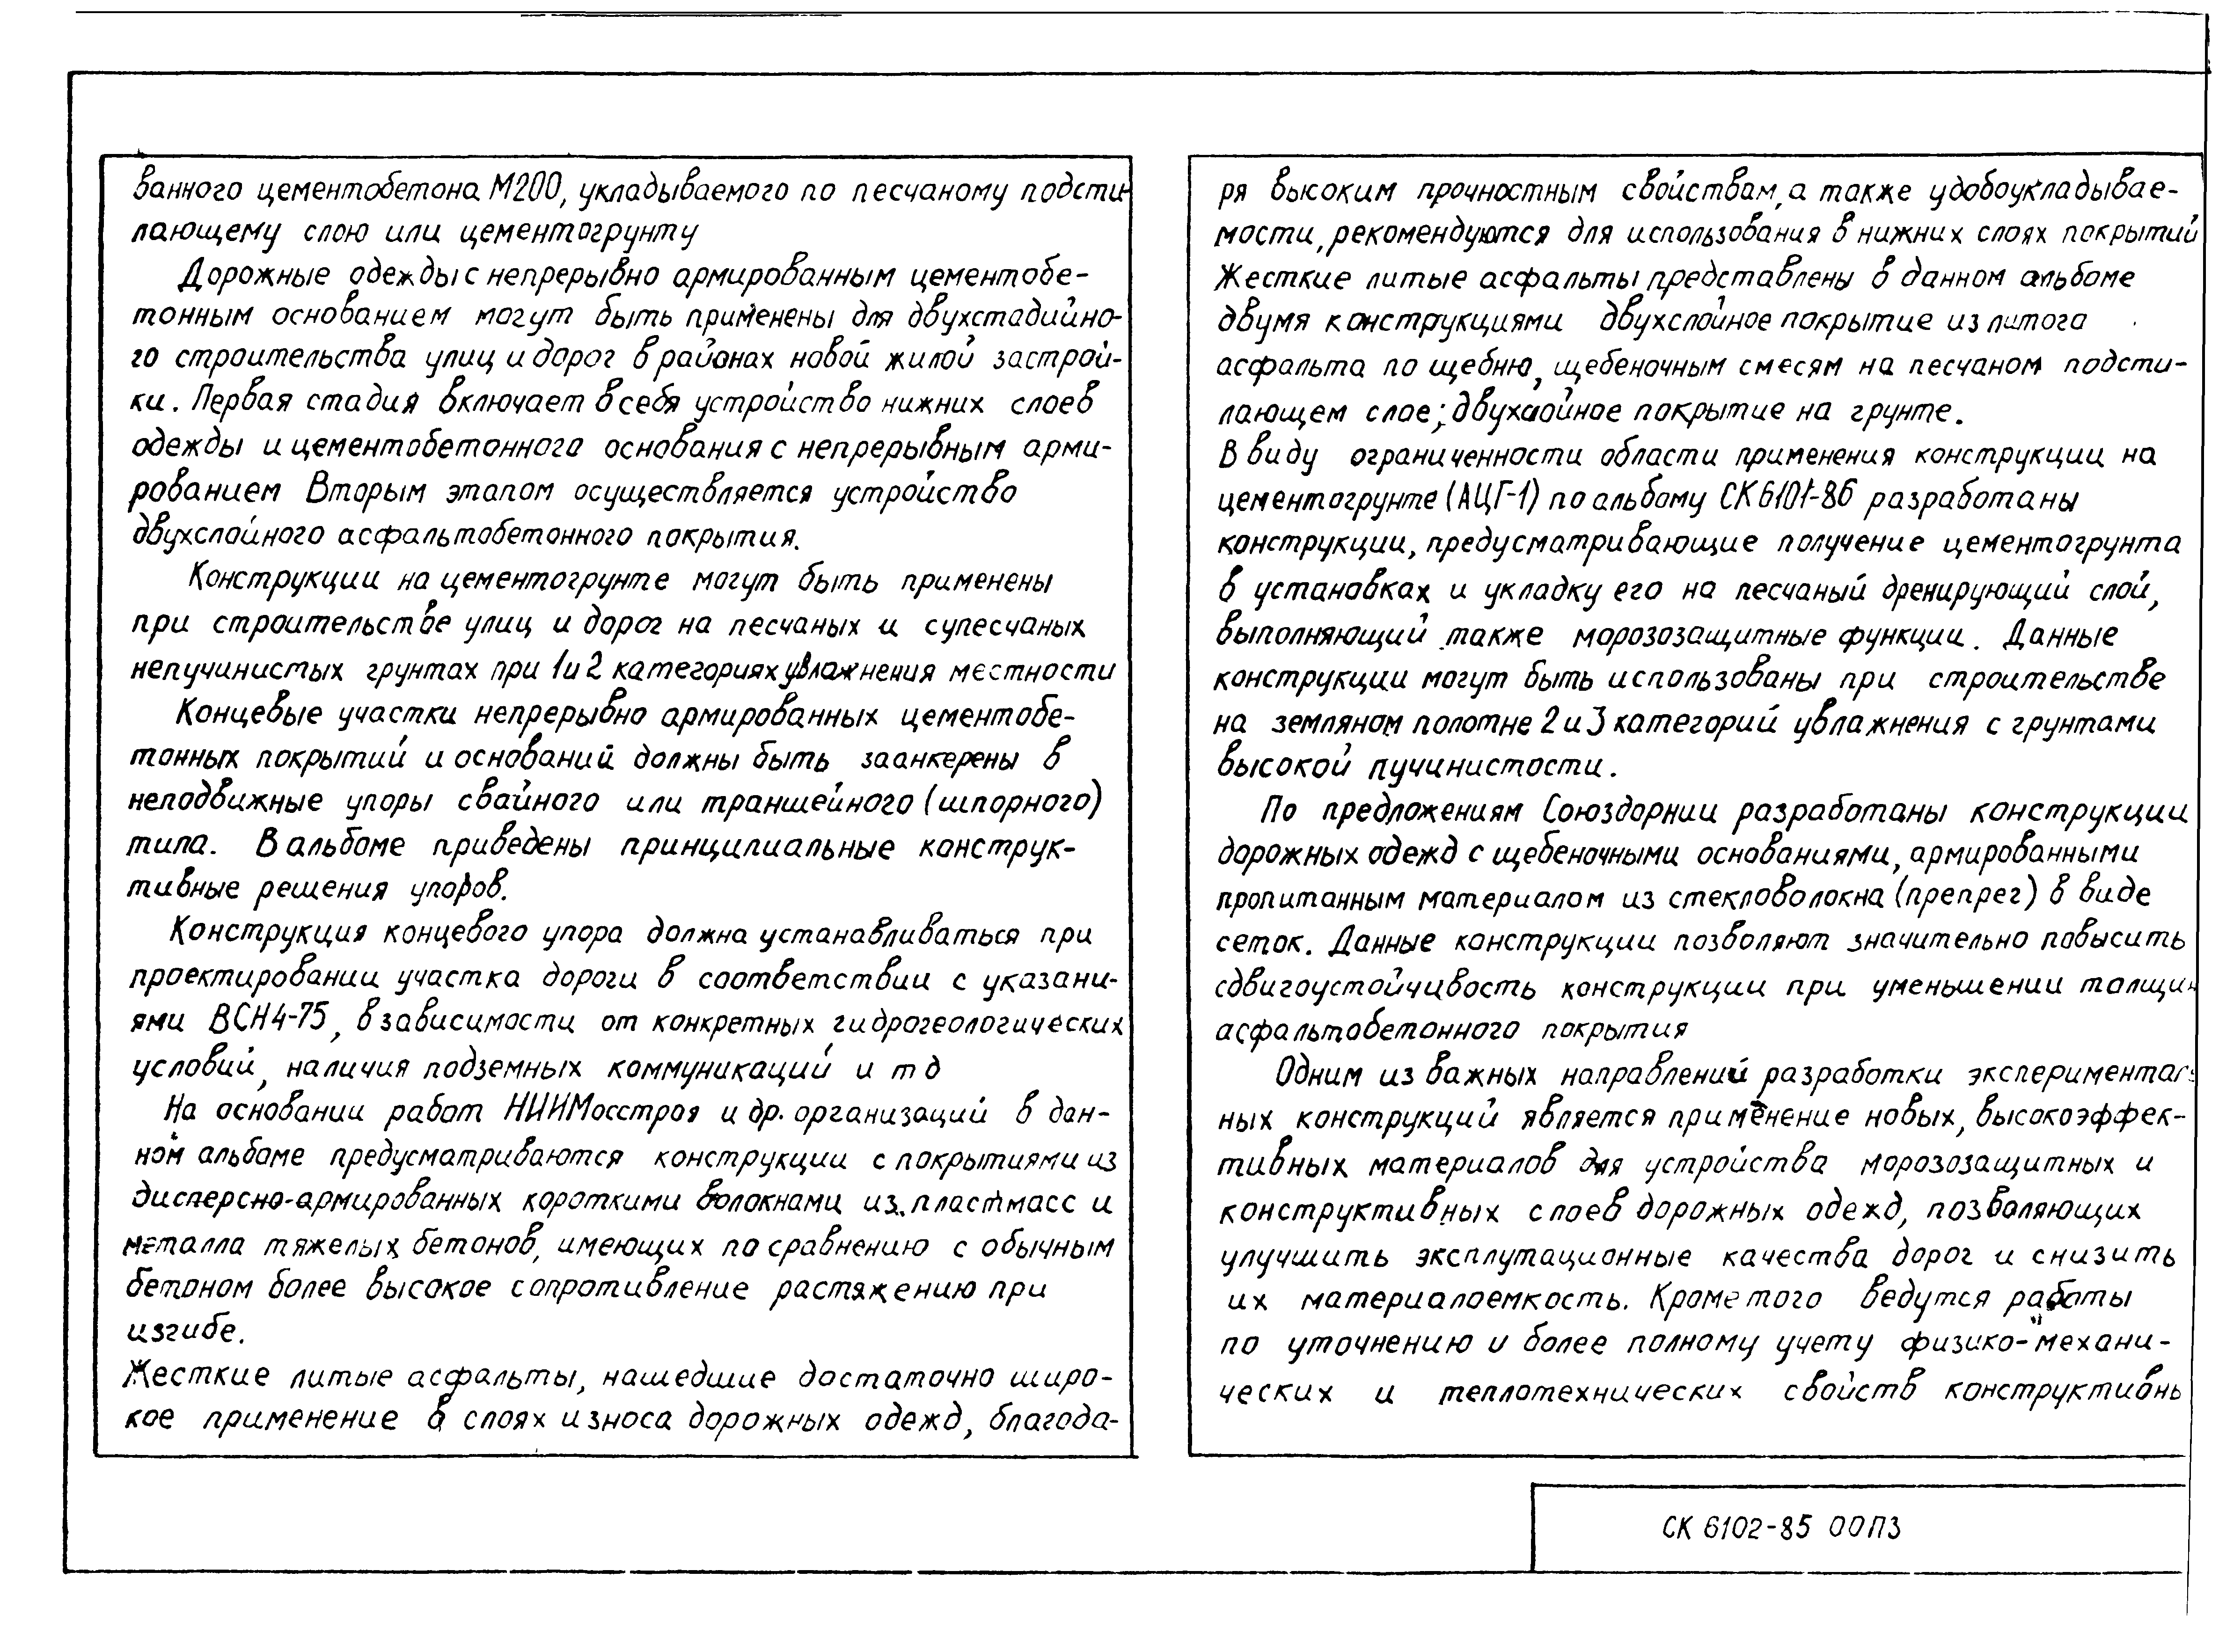 ванного цементобетона М200, укладываемого по песчаному подсти-
лающему слою или цементогрунту
Дорожные одежды с непрерывно армированным цементобе-
тонным основанием могут быть применены для двухстадийно-
го строительства улиц и дорог в районах новой жилой застрой-
ки. Первая стадия включает в себя устройство нижних слоев
одежды и цементобетонного основания с непрерывным арми-
рованием Вторым этапом осуществляется устройство
двухслойного асфальтобетонного покрытия.
Конструкции на цементогрунте могут быть применены
при строительстве улиц и дорог на песчаных и супесчаных
непучинистых грунтах при 1 и 2 категориях увлажнения местности
Концевые участки непрерывно армированных цементобе-
тонных покрытий и оснований должны быть заанкерены в
неподвижные упоры свайного или траншейного (шпорного)
типа. В альбоме приведены принципиальные конструк-
тивные решения упоров.
Конструкция концевого упора должна устанавливаться при
проектировании участка дороги в соответствии с указани-
ями ВСН4-75, в зависимости от конкретных гидрогеологических
условий, наличия подземных коммуникаций и т д
На основании работ НИИМосстроя и др. организаций в дан-
ном альбоме предусматриваются конструкции с покрытиями из
дисперсно-армированных короткими волокнами из пластмасс и
металла тяжелых бетонов, имеющих по сравнению с обычным
бетоном более высокое сопротивление растяжению при
изгибе.
Жесткие литые асфальты, нашедшие достаточно широ-
кое применение в слоях износа дорожных одежд, благода-
ря высоким прочностным свойствам, а также удобоукладывае-
мости, рекомендуются для использования в нижних слоях покрытий
Жесткие литые асфальты представлены в данном альбоме
двумя конструкциями двухслойное покрытие из литого
асфальта по щебню, щебеночным смесям на песчаном подсти-
лающем слое; двухслойное покрытие на грунте.
В виду ограниченности области применения конструкции на
цементогрунте (АЦГ-1) по альбому СК6101-86 разработаны
конструкции, предусматривающие получение цементогрунта
в установках и укладку его на песчаный дренирующий слой,
выполняющий также морозозащитные функции. Данные
конструкции могут быть использованы при строительстве
на земляном полотне 2 и 3 категорий увлажнения с грунтами
высокой пучинистости.
По предложениям Союздорнии разработаны конструкции
дорожных одежд с щебеночными основаниями, армированными
пропитанным материалом из стекловолокна (препрег) в виде
сеток. Данные конструкции позволяют значительно повысить
сдвигоустойчивость конструкции при уменьшении толщин
асфальтобетонного покрытия
Одним из важных направлений разработки эксперименталь-
ных конструкций является применение новых, высокоэффек-
тивных материалов для устройства морозозащитных и
конструктивных слоев дорожных одежд, позволяющих
улучшить эксплутационные качества дорог и снизить
их материалоемкость. Кроме того ведутся работы
по уточнению и более полному учету физико-механи-
ческих и теплотехнических свойств конструктивн
СК 6102-85 00ПЗ